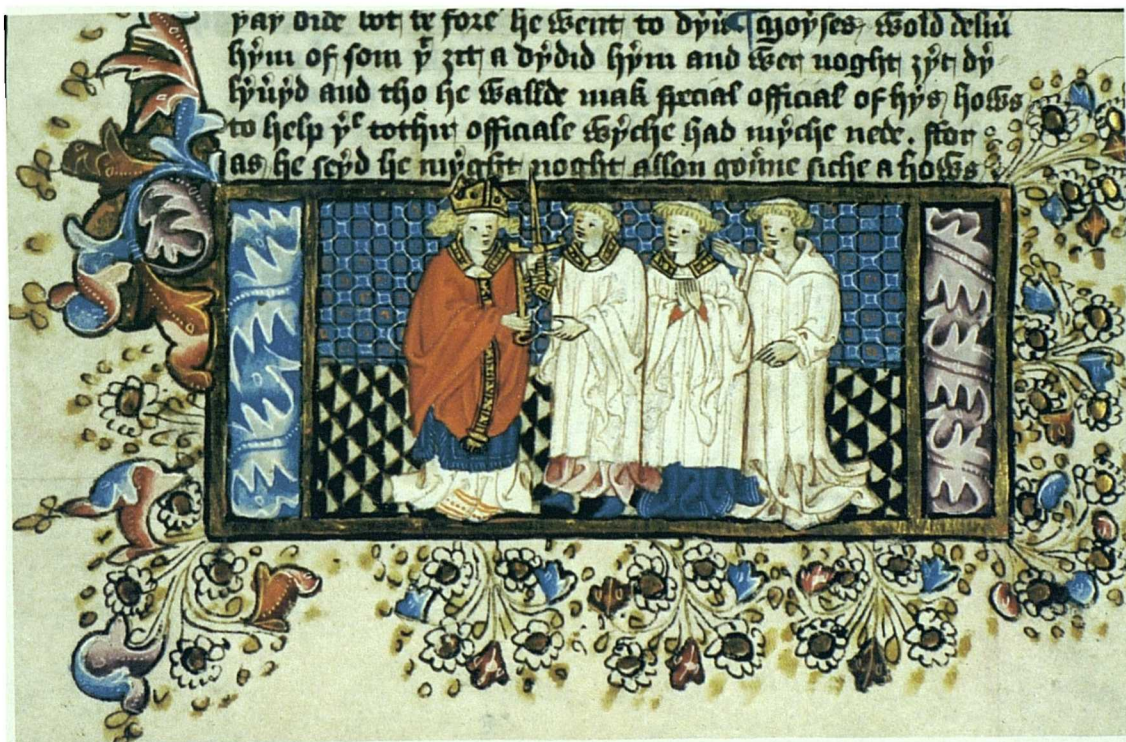 yay dide bot te fore he went to dyin ¶ Moyses wold deliu
hym of som yͤ zit a dydid hym and wer noght zyt dy
hyuyd and tho he wallde mak special official of hys hows
to help yͤ tothir officiale wyche had myche nede. ffor
as he seyd he myght noght allon gou̅ne siche a hows